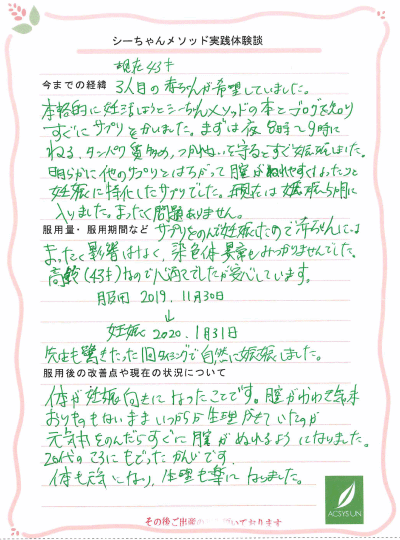 シーちゃんメソッド実践体験談
現在43才
今までの経緯 3人目の赤ちゃんが希望していました。
本格的に妊活しようとシーちゃんメソッドの本とブログを知り
すぐにサプリをかいました。まずは夜8時〜9時に
ねる、タンパク質多め、つかれないを守るとすぐ妊娠しました。
明らかに他のサプリとはちがって膣がぬれやすくなったりと
妊娠に特化したサプリでした。現在は妊娠5ヶ月に
入りました。まったく問題ありません。
服用量・服用期間など サプリをのんで妊娠したので赤ちゃんには
まったく影響はなく、染色体異常もみつかりませんでした。
高齢(43才)なので心配でしたが安心しています。
服用 2019.11月30日
↓
妊娠 2020.1月31日
先生も驚きたった1回のタイミングで自然に妊娠しました。
服用後の改善点や現在の状況について
体が妊娠向きになったことです。膣がかわいて年末
おりものもないままいつから生理がきていたのが
元気本をのんだらすぐに膣がぬれるようになりました。
20代のころにもどったかんじです。
体も元気になり、生理も楽になりました。
その後ご出産の
いております
ACSYSUN